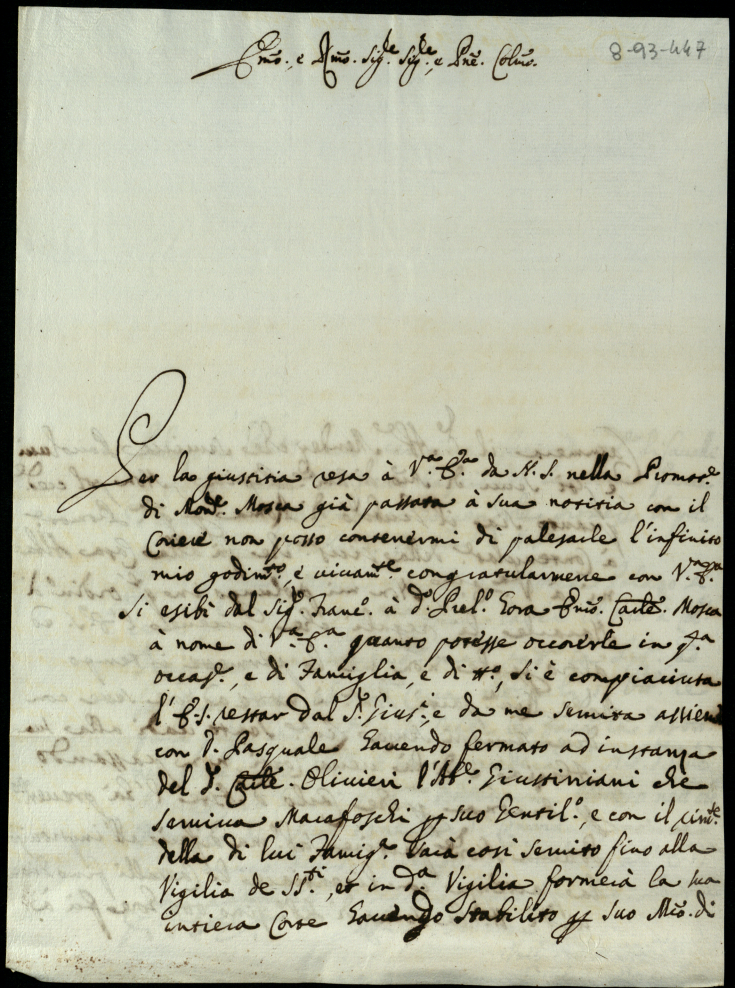 Emo., e Rmo. Sig.re Sig.re, e Pne. Colmo.
8-93-447
Per la giustitia resa à V.a E.a da N.S. nella Promot.e
di Mons.e Mosca già passata à sua notitia con il
Coriere non posso contenermi di palesarle l'infinito
mio godim.to, e vivam.te congratularmene con V.a E.a
Si esibì dal Sig.r Franc.o à d.o Prel.o Hora Emo. Carle. Mosca
à nome di V.a E.a quanto potesse occorerle in q.a
occas.e, e di Famiglia, e di , si è compiaciuta
l'E.S. restar dal S. Gius.e, e da me servita assiem
con D. Pasquale havendo fermato ad instanza
del S. Carle. Olivieri l'Ab.e Giustiniani che
serviva Macafoschi p suo Gentil.o, e con il rim.te
della di lui Famig.a sarà così servito fino alla
Vigilia de SS.ti, et in d.a Vigilia formerà la sua
intiera Corte havendo stabilito p suo Mro. di